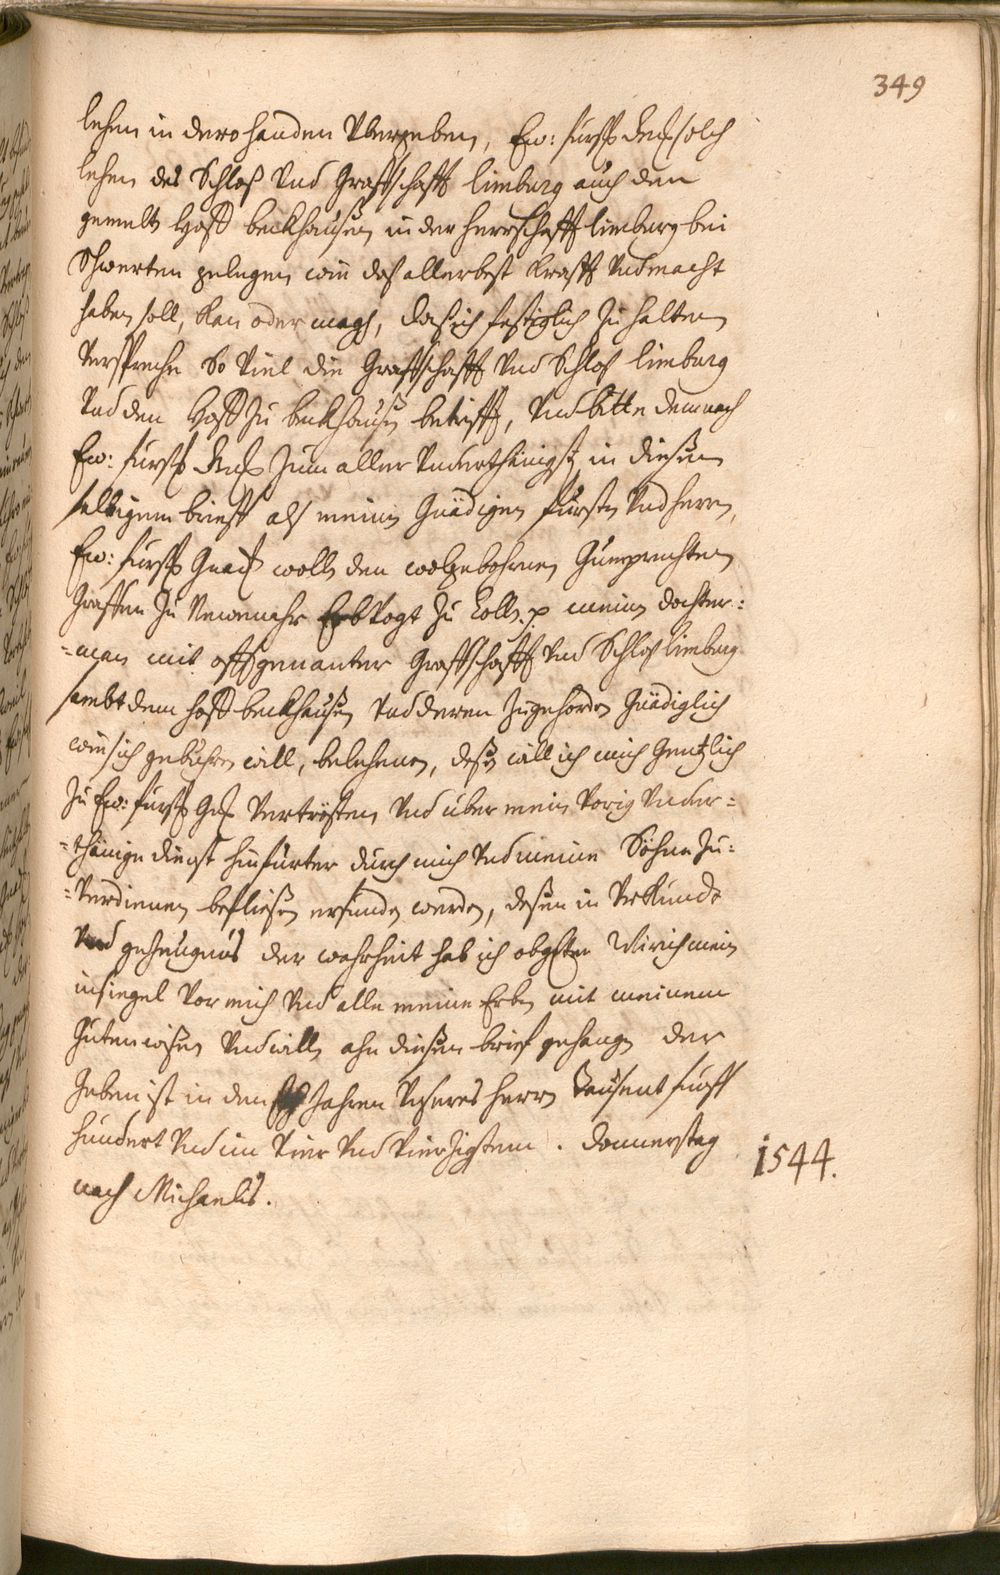 349
lehen in dero handen Vbergeben, Ew: fürstl Gnd solch
lehen des Schloß Vnd Graffschafft limburg auch den
gemelte Hoff beckhausen in der herrschafft limburg bei
Schwerten gelegen wie daß allerbest Krafft Vnd macht
haben soll, Kan oder magh, daß ich festiglich zu halten
Verspreche So Viel die Graffschafft Vnd Schloß limburg
Vnd den Hoff zu beckhausen betrifft, Vnd bitte demnach
Ew: fürstl Gnd zum aller Vnderthänigst in diesem
selbigem brieff als meinen Gnädigen fürsten Vnd herrn,
Ew: fürstl Gnad wolle den wolgebohrnen Gumprechten
Graffen zu Newenahr Erbvogt zu Colln. p meinen dochter=
=man mit offtgenanter Graffschafft Vnd Schloß limburg
sambt dem hoff beckhausen Vnd deren Zugehörden Gnädiglich
wie sich gebühren will, belehenen, deß will ich mich Gentzlich
zu Ew: fürstl Gnd Vertrösten Vnd über mein Vorig Vnder=
=thänige dienst hinfürter durch mich Vnd meine Söhne zu=
=Verdienen befliesen erfunden werden, desen in Vrkunde
Vnd gezeugnüs der wahrheit hab ich obgter Wirich mein
insiegel Vor mich Vnd alle meine Erben mit meinem
Guten wisen Vnd willen ahn diesen brief gehangen der
Geben ist in den Jahren Vnseres herrn Tausent fünff
hundert Vnd im Vier Vnd Vierzigstem. Donnerstag
1544.
nach Michaelis.